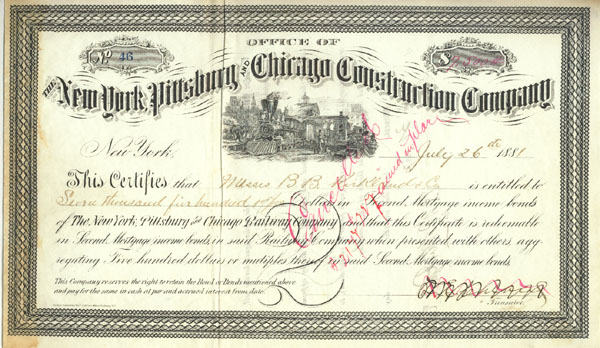 OFFICE OF
No 46
THE New York, Pittsburg AND Chicago Construction Company
New York, July 26th 1881
This Certifies that Messrs B. B. & Co is entitled to
Seven thousand five hundred Dollars in Second Mortgage income bonds
of The New York, Pittsburg and Chicago Railway Company and that this Certificate is redeemable
in Second Mortgage income bonds, in said Railway Company when presented with others, agg-
regating Five hundred dollars or multiples thereof in said Second Mortgage income bonds.
This Company reserves the right to retain the Bond or Bonds mentioned above
and pay for the same in cash at par and accrued interest from date.
Treasurer.
Cancelled
issued in place